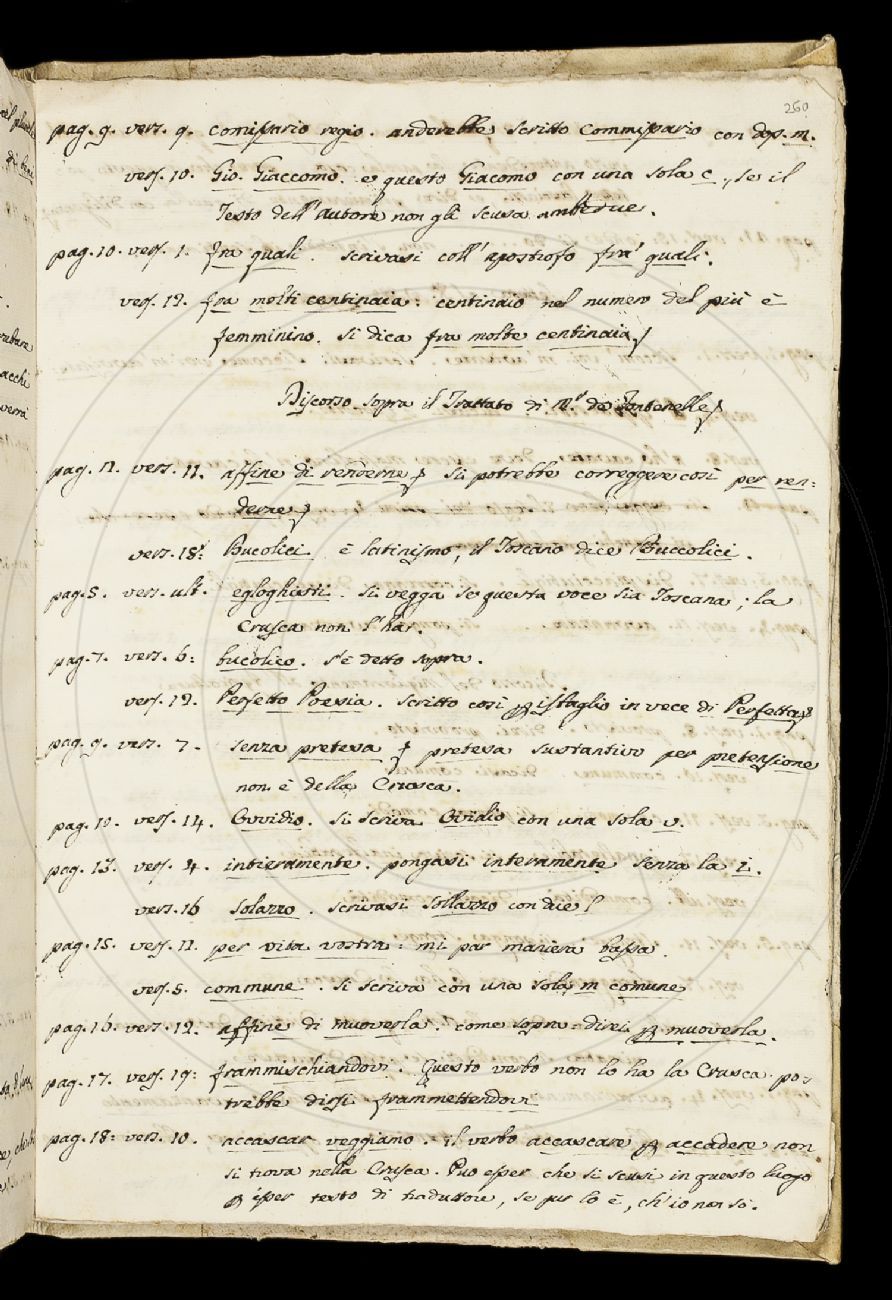 260
pag. 9. vers. 9. comissario regio. anderebbe scritto commissario con dop. m.
vers. 10. Gio. Giaccomo. e questo Giacomo con una sola c, se il
Testo dell'autore non gli scusa ambedue.
pag. 10. vers. 1. fra quali. scrivasi coll'apostrofo fra' quali.
vers. 12. fra molti centinaia: centinaio nel numero del più è
femminino. si dica fra molte centinaia
Discorso sopra il Trattato di M.r de Fontenelle
pag. 11. affine di renderne si potrebbe correggere così per ren=
derne
vers. 18: Bucolici è latinismo, il Toscano dice Buccolici.
pag. 5. vers. ult. egloghisti. si vegga se questa voce sia Toscana; la
Crusca non l'hà.
pag. 7. vers. 6: bucolico. s'è detto sopra.
vers. 12. Perfetto Poesia. scritto così isfaglio in vece di Perfetta
pag. 9. vers. 7. senza pretesa pretesa sustantivo per pretensione
non è della Crusca.
pag. 10. vers. 14. Ovvidio. si scriva Ovidio con una sola v.
pag. 13. vers. 4. intieramente. pongasi interamente senza la i.
vers. 16 solazzo. scrivasi sollazzo con due l
pag. 15. vers. 11. per vita vostra: mi par maniera bassa.
vers. 5. commune. si scriva con una sola m comune
pag. 16. vers. 12. affine di muoverla. come sopra = direi p muoverla.
pag. 17. vers. 19: frammischiandovi. Questo verbo non lo ha la Crusca. po=
trebbe dirsi frammettendovi
pag. 18: vers. 10. accascar veggiamo. il verbo accascare p accadere non
si trova nella Crusca. Può esser che si scusi in questo luogo
p esser testo di traduttore, se pur lo è, ch'io non so.